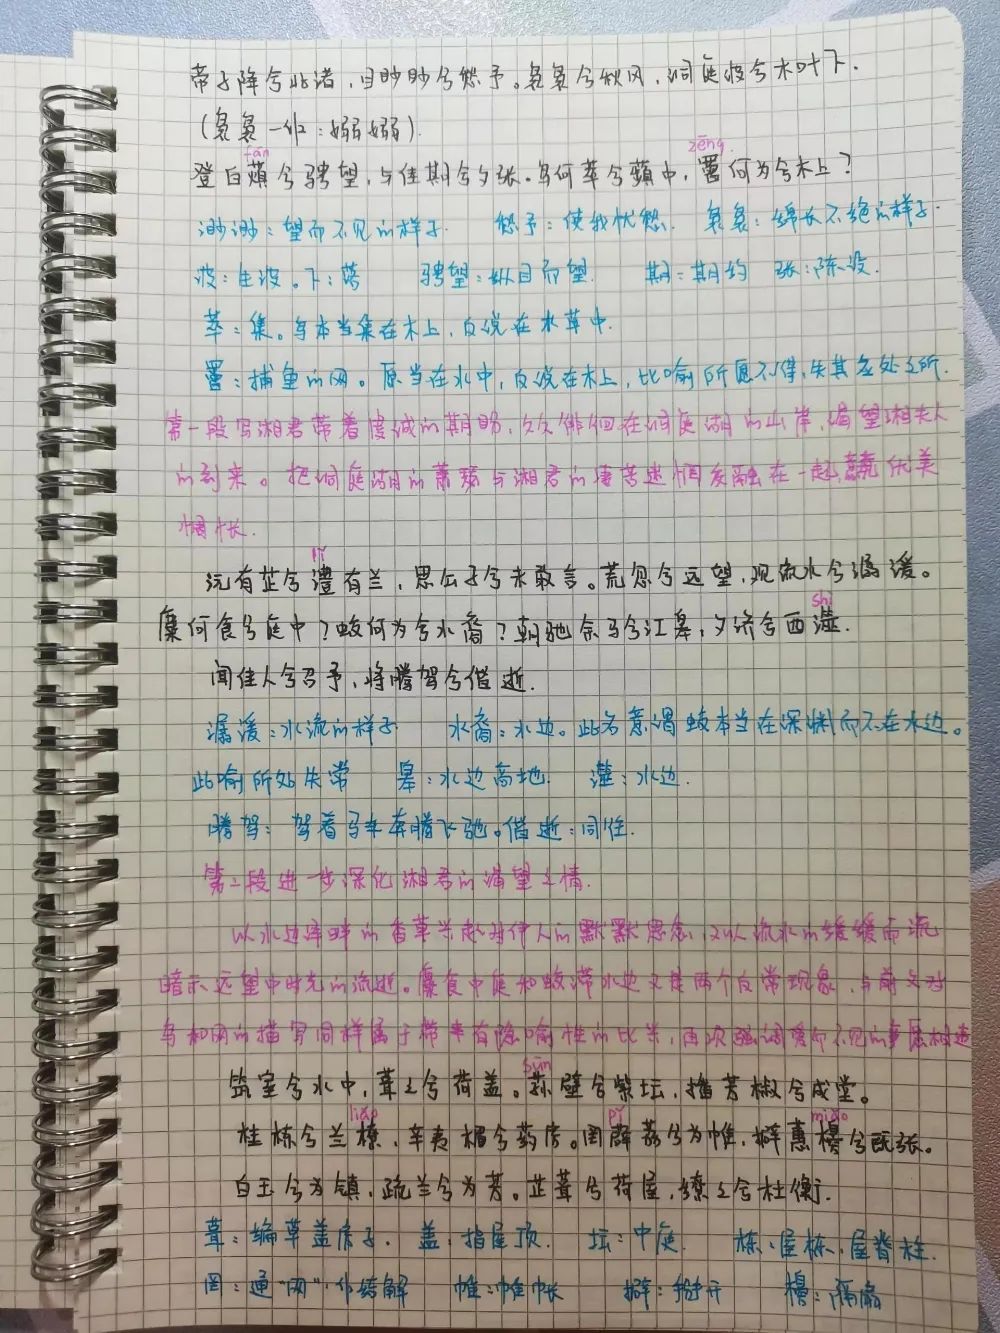 帝子降兮北渚，目眇眇兮愁予。袅袅兮秋风，洞庭波兮木叶下。
（袅袅一作：嫋嫋）
fán zēng
登白薠兮骋望，与佳期兮夕张。鸟何萃兮蘋中，罾何为兮木上？
渺渺：望而不见的样子 愁予：使我忧愁 袅袅：绵长不绝的样子
波：生波。下：落 骋望：纵目而望 期：期约 张：陈设
萃：集。鸟本当集在木上，反说在水草中
罾：捕鱼的网。原当在水中，反说在木上，比喻所愿不得，失其应处之所
第一段写湘君带着虔诚的期盼，久久徘徊在洞庭湖的山岸，渴望湘夫人
的到来。把洞庭湖的萧瑟与湘君的凄苦迷惘交融在一起，优美
惆怅
lǐ
沅有芷兮澧有兰，思公子兮未敢言。荒忽兮远望，观流水兮潺湲。
shì
麋何食兮庭中？蛟何为兮水裔？朝驰余马兮江皋，夕济兮西澨。
闻佳人兮召予，将腾驾兮偕逝。
潺湲：水流的样子 水裔：水边。此名意谓蛟本当在深渊而不在水边。
此喻所处失常 皋：水边高地 澨：水边
腾驾：驾着马车奔腾飞驰。偕逝：同往
第二段进一步深化湘君的渴望之情
以水边泽畔的香草兴起对伊人的默默思念，又以流水的缓缓而流
暗示远望中时光的流逝。麋食中庭和蛟滞水边又是两个反常现象，与前文对
鸟和网的描写同样属于带有隐喻性的比兴，再次强调爱而不见的事愿相违
sūn
筑室兮水中，葺之兮荷盖。荪壁兮紫坛，播芳椒兮成堂。
liǎo pì miǎo
桂栋兮兰橑，辛夷楣兮药房。罔薜荔兮为帷，擗蕙櫋兮既张。
白玉兮为镇，疏兰兮为芳。芷葺兮荷屋，缭之兮杜衡。
葺：编草盖房子 盖：指屋顶 坛：中庭 栋：屋栋，屋脊柱
罔：通“网”，作结解 帷：帷帐 擗：掰开 櫋：隔扇